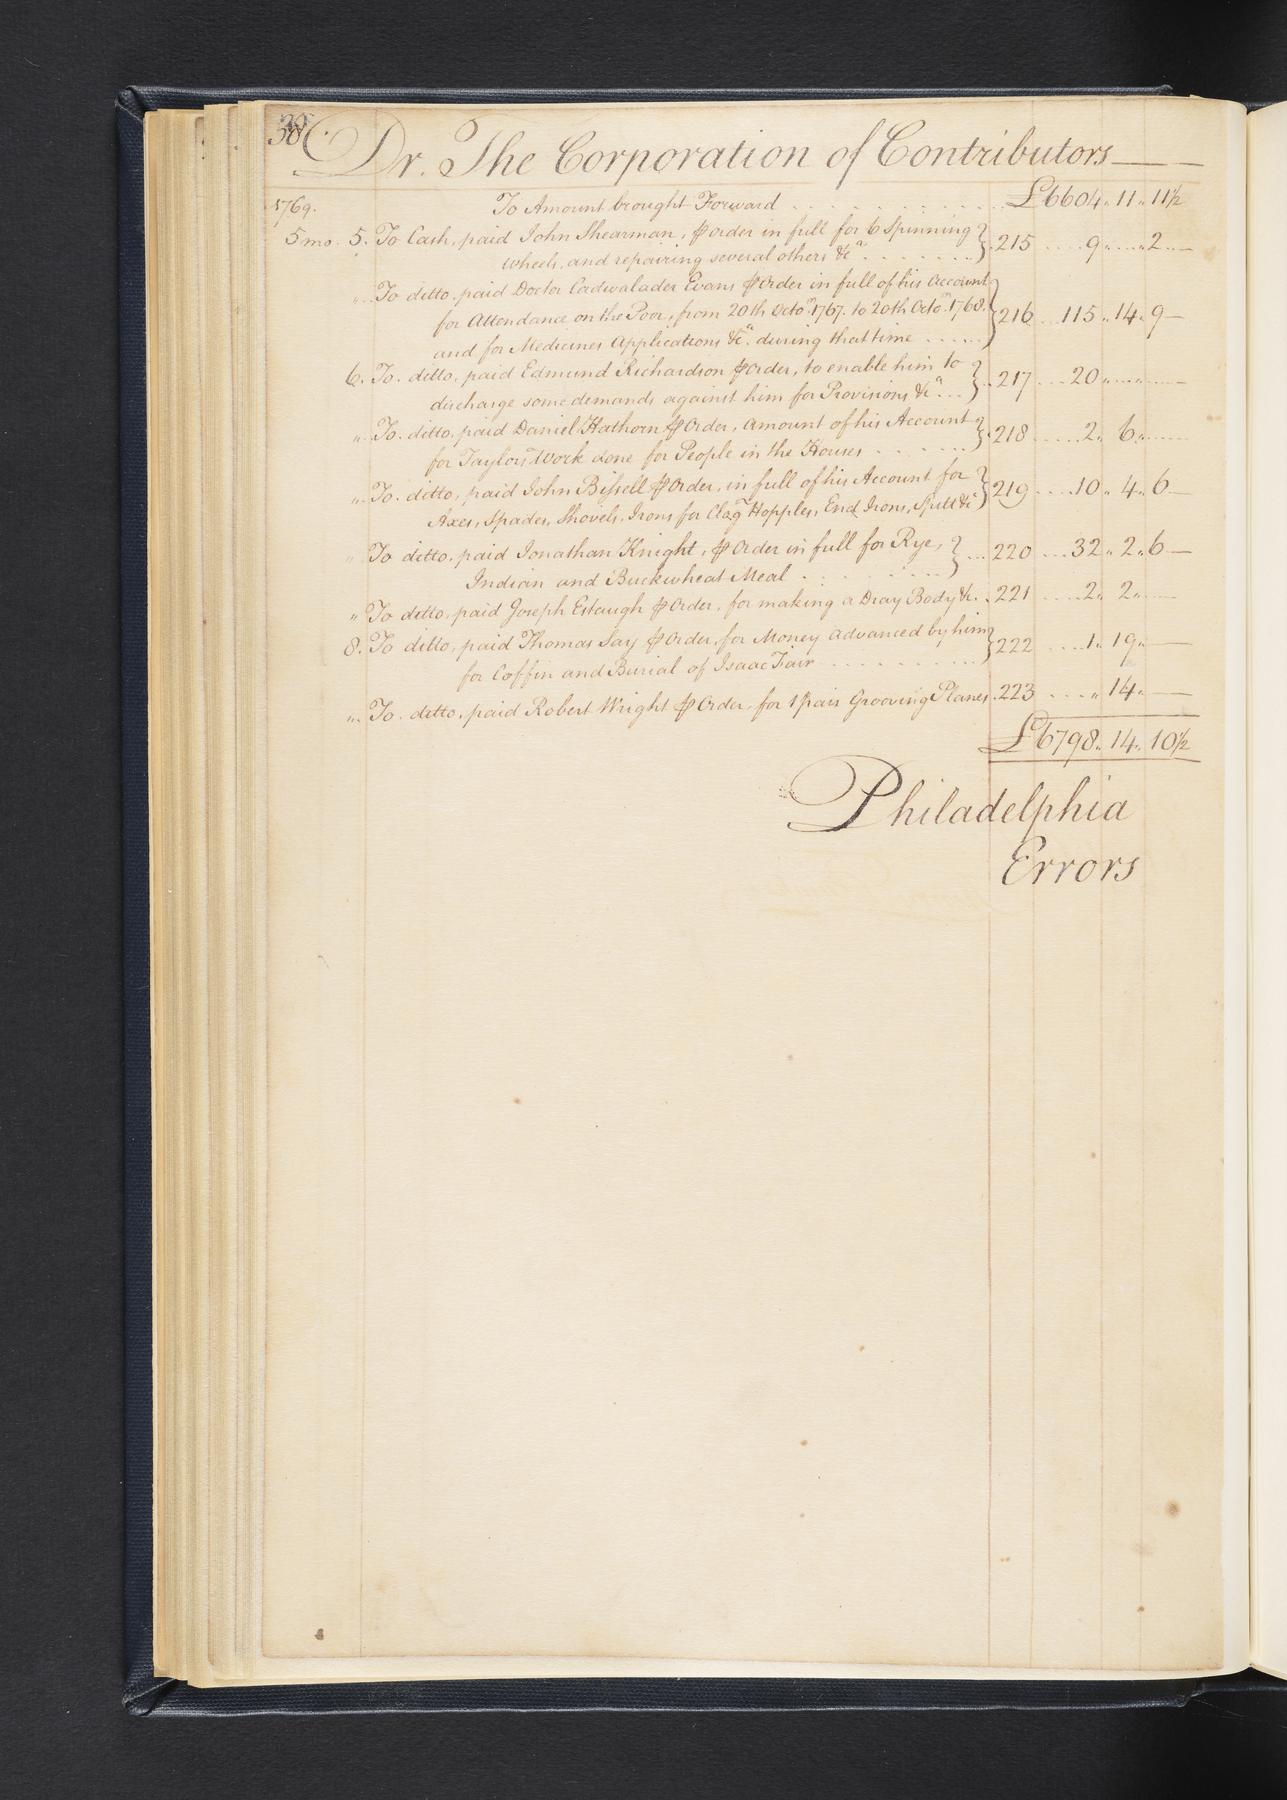 38
Dr. The Corporation of Contributors
1769. To Amount brought Forward . . . £6604 " 11 " 11½
5 mo. 5. To Cash, paid John Shearman, ⅌ order in full for 6 Spinning
wheels, and repairing several others &cª. . . . } 215 . . . 9 " . . . " 2 " —
" To ditto, paid Doctor Cadwalader Evans ⅌ Order in full of his Account
for Attendance on the Poor, from 20th Octo.r 1767. to 20th Octo.r 1768. } 216 . . . 115 " 14 " 9 —
and for Medicines Applications &cª. during that time . . . .
6. To. ditto, paid Edmund Richardson ⅌ Order, to enable him to
discharge some demands against him for Provisions &cª . . . } 217 . . . 20 " . . . " . . . —
" To. ditto, paid Daniel Hathorn ⅌ Order, amount of his Account
for Taylors Work done for People in the Houses . . . . } 218 . . . 2 " 6 " . . . —
" To. ditto, paid John Bissell ⅌ Order, in full of his Account for
Axes, Spades, Shovels, Irons for Hopples, End Irons, Spitt &cª } 219 . . . 10 " 4 " 6 —
" To ditto, paid Jonathan Knight, ⅌ Order in full for Rye,
Indian and Buckwheat Meal . . . . } 220 . . . 32 " 2 " 6 —
" To ditto, paid Joseph Estaugh ⅌ Order, for making a Dray Body &c. . 221 . . . 2 " 2 " . . . —
8. To ditto, paid Thomas Say ⅌ Order, for Money advanced by him
for Coffin and Burial of Isaac Fair . . . . } 222 . . . 1 " 19 " —
" To. ditto, paid Robert Wright ⅌ Order, for 1 pair Grooving Planes . 223 . . . " 14 " —
£6798 " 14 " 10½
Philadelphia
Errors